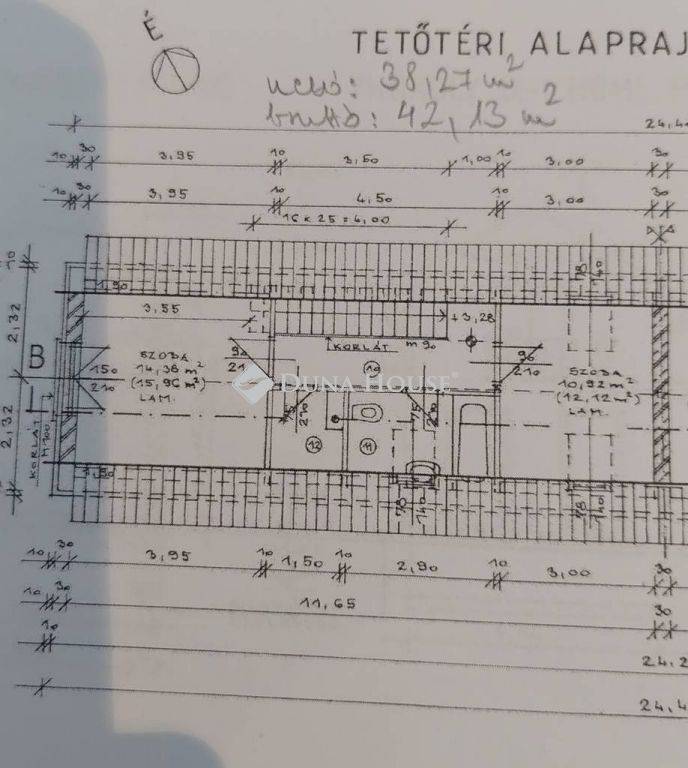 É
TETŐTÉRI ALAPRAJ
nettó: 38,27 m²
bruttó: 42,13 m²
24,4
10 30 3,95 10 3,50 1,00 10 3,00 30
10 30 3,95 10 4,50 10 3,00 30
16 x 25 = 4,00
10
1,90
78
140
2,32
3,55
+3,28
KORLÁT m 90
B
150
210
SZOBA
14,36 m²
(15,96 m²)
LAM.
90
21
10
90
210
SZOBA
10,92 m²
(12,12 m²)
LAM.
DUNA HOUSE
75
210
75
210
12
11
2,32
KORLÁT
M 100
1,90
78
140
78
140
10 30 3,95 10 1,50 10 2,90 10 3,00 30
10 30 11,65 30
10 24,2
24,4